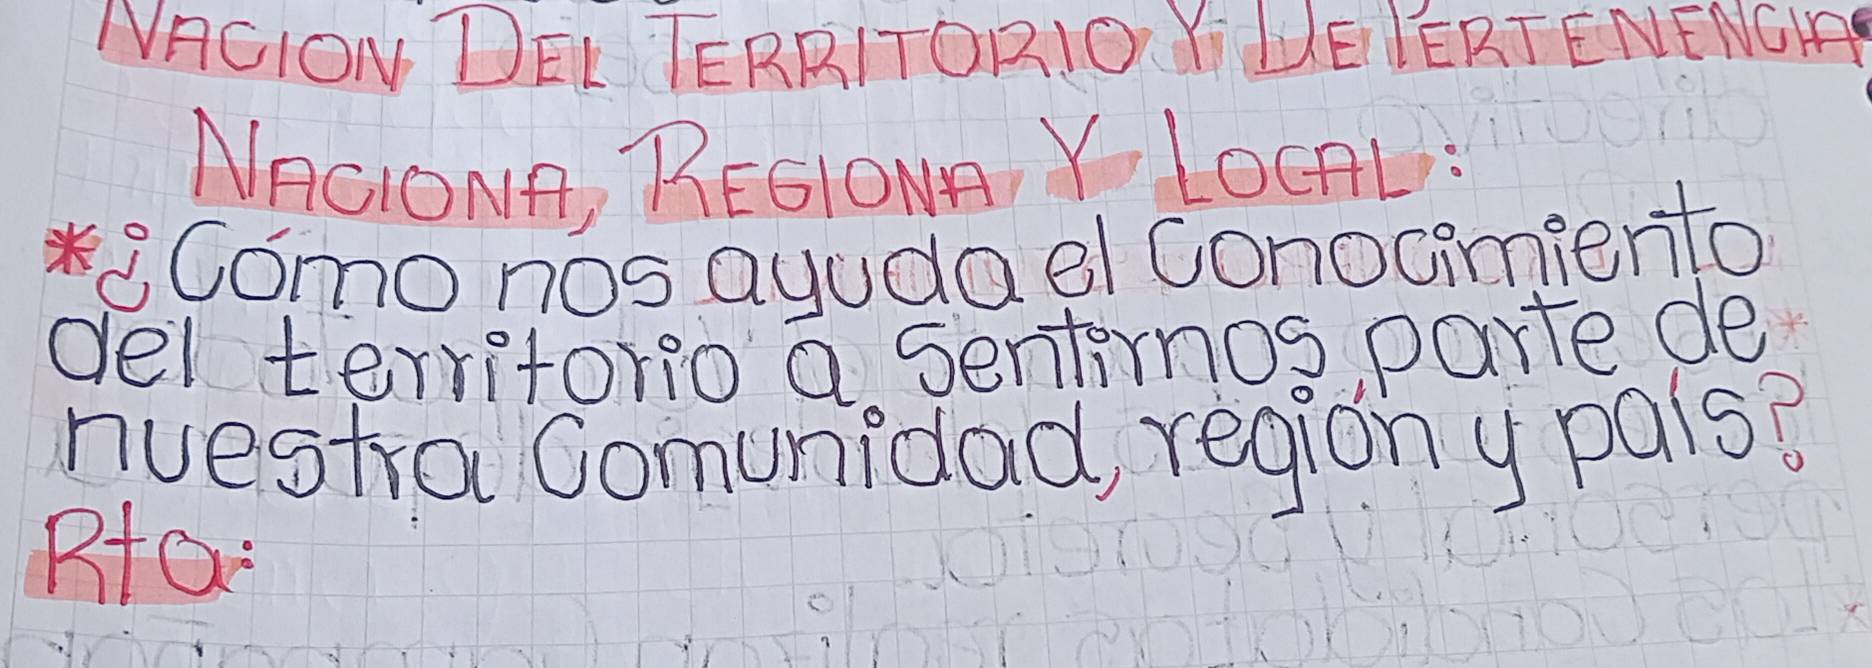 NACION DEL TERRITORIO Y DE PERTENENCIA
NACIONA, REGIONA Y LOCAL:
*¿Cómo nos ayuda el conocimiento
del territorio a sentirnos parte de
nuestra comunidad, región y país?
Rta: